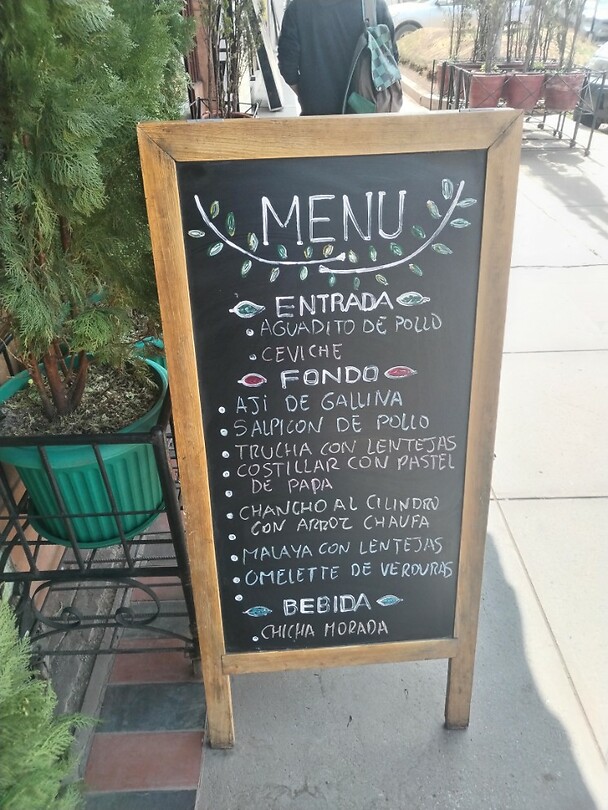 MENU
ENTRADA
• AGUADITO DE POLLO
• CEVICHE
FONDO
• AJI DE GALLINA
• SALPICON DE POLLO
• TRUCHA CON LENTEJAS
• COSTILLAR CON PASTEL
DE PAPA
• CHANCHO AL CILINDRO
CON ARROZ CHAUFA
• MALAYA CON LENTEJAS
• OMELETTE DE VERDURAS
BEBIDA
• CHICHA MORADA